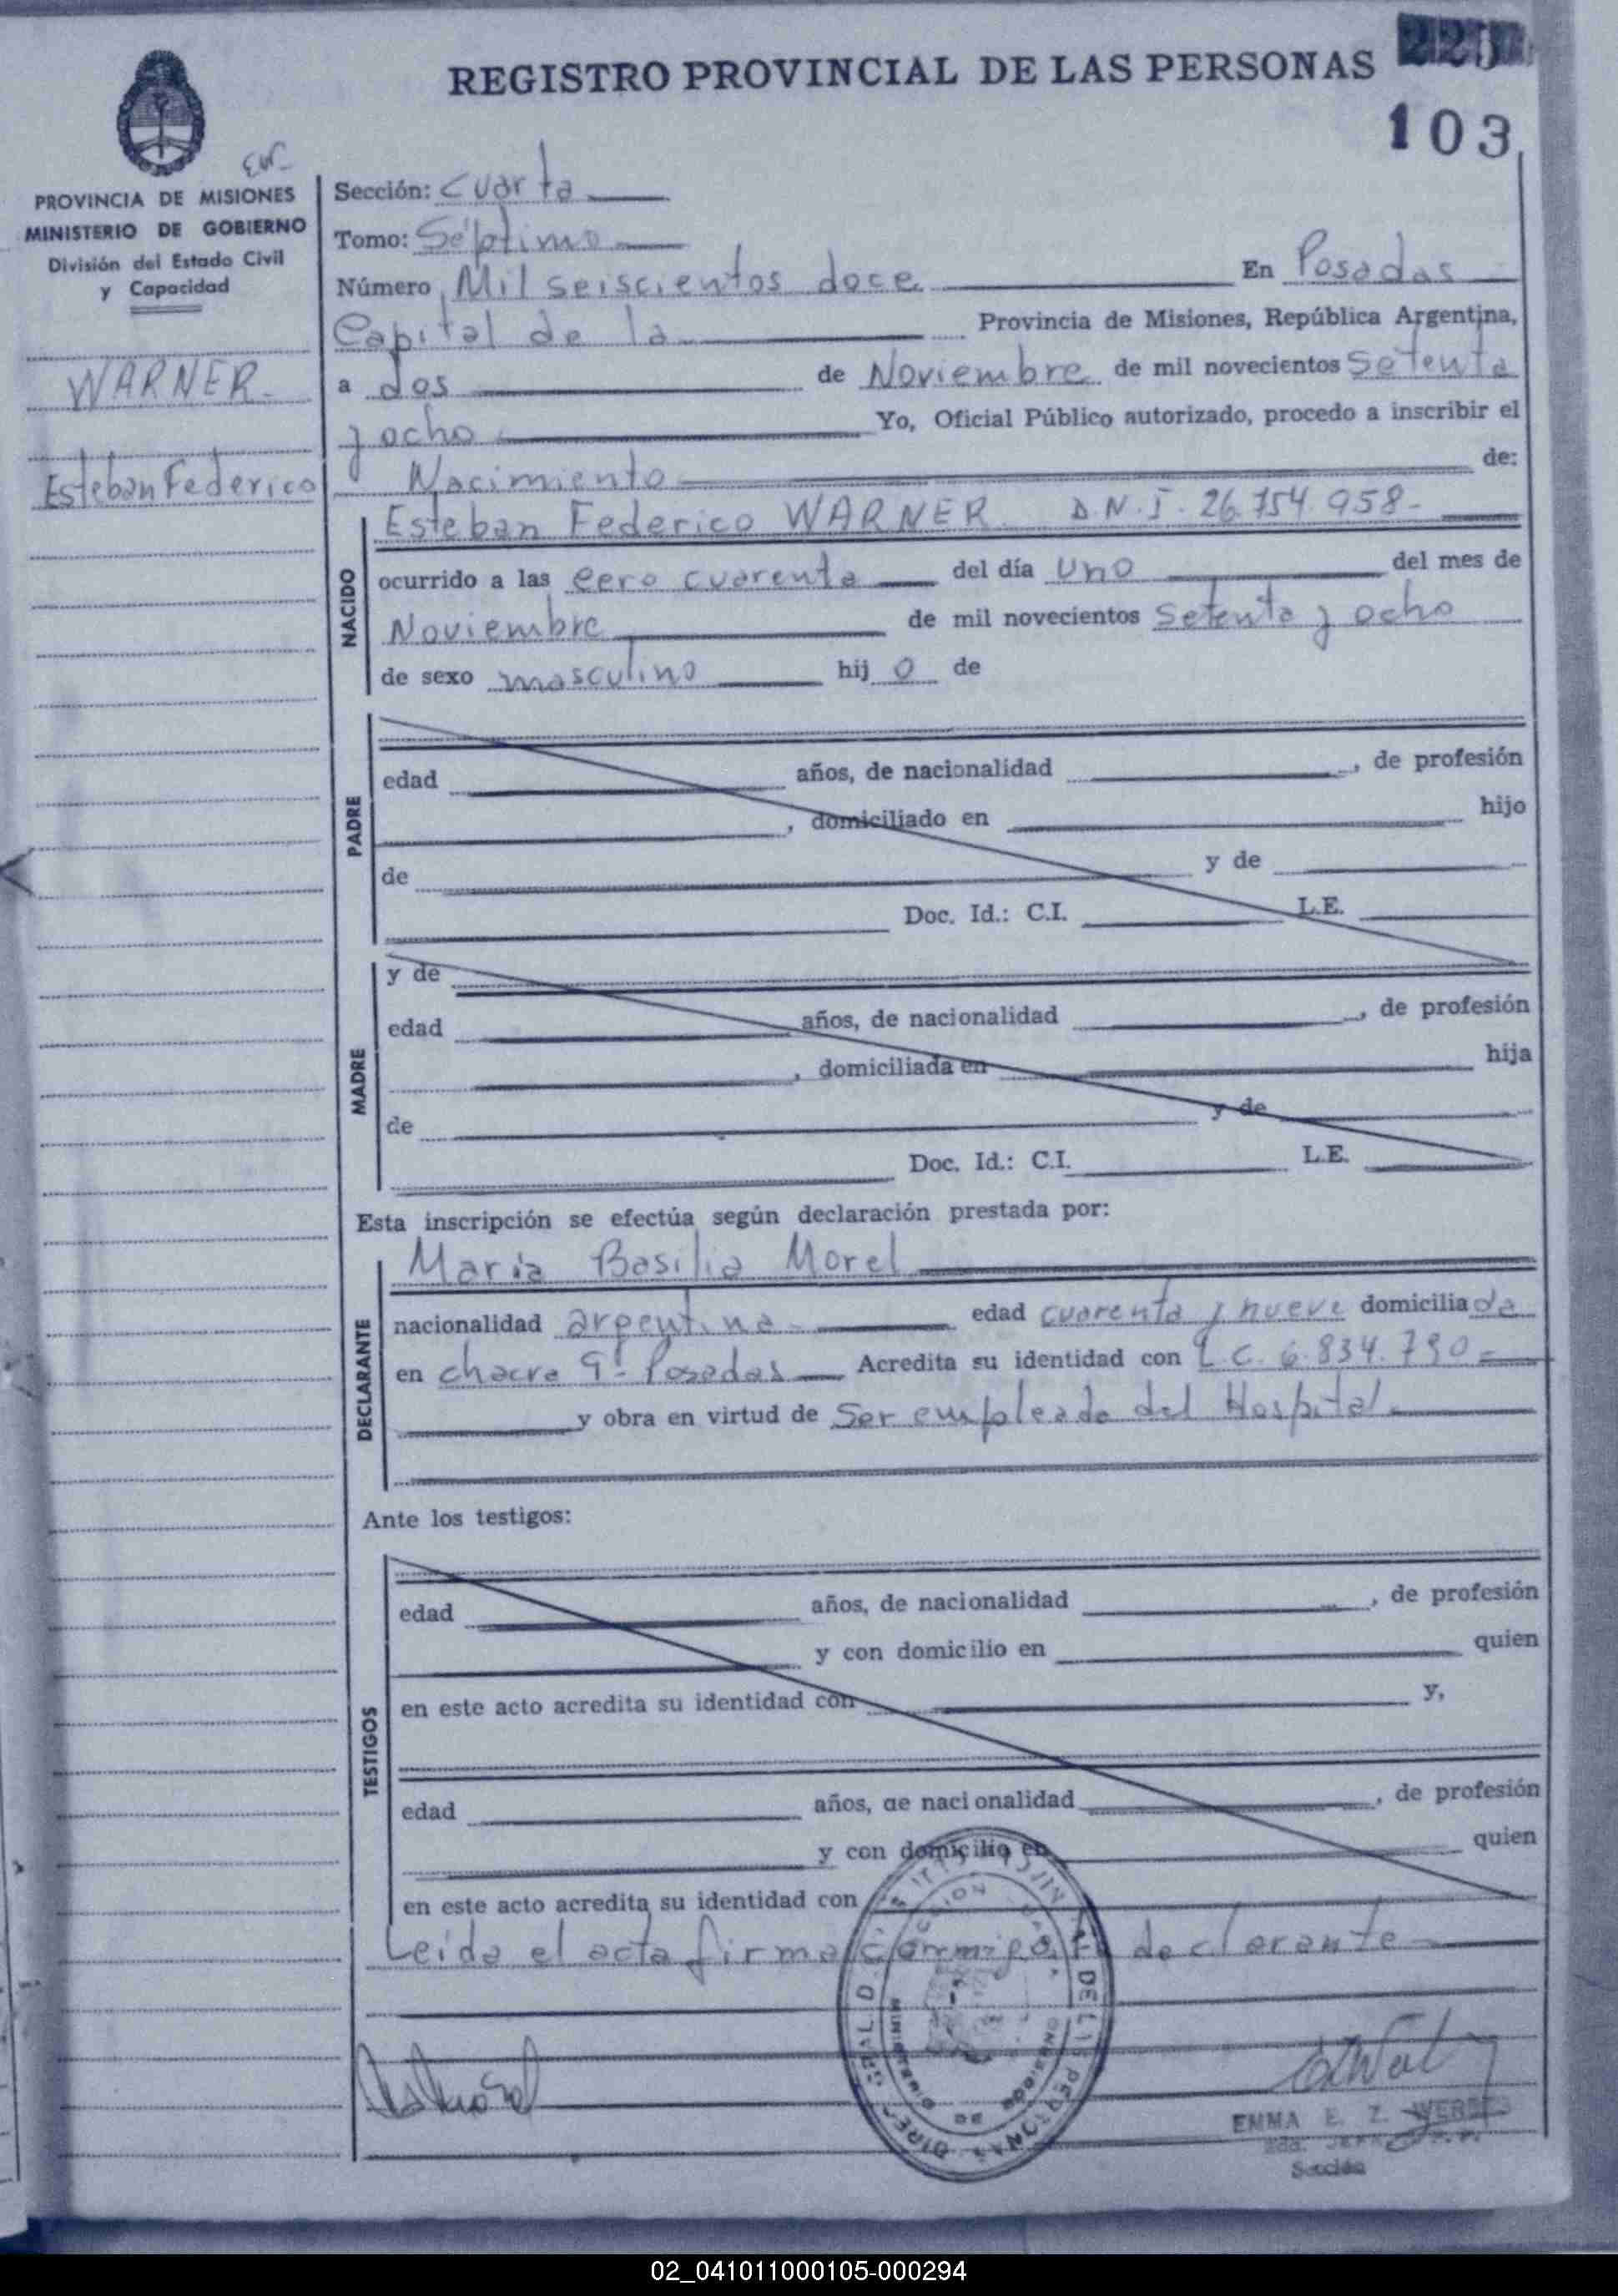 REGISTRO PROVINCIAL DE LAS PERSONAS
103
PROVINCIA DE MISIONES
MINISTERIO DE GOBIERNO
División del Estado Civil
y Capacidad
WARNER
Esteban Federico
Sección: Cuarta
Tomo: Séptimo
Número Mil seiscientos doce En Posadas
Capital de la Provincia de Misiones, República Argentina,
a dos de Noviembre de mil novecientos Setenta
y ocho Yo, Oficial Público autorizado, procedo a inscribir el
Nacimiento de:
NACIDO
Esteban Federico WARNER D.N.I. 26.754.958-
ocurrido a las cero cuarenta del día uno del mes de
Noviembre de mil novecientos setenta y ocho
de sexo masculino hijo de
PADRE
edad años, de nacionalidad , de profesión
, domiciliado en hijo
de y de
Doc. Id.: C.I. L.E.
MADRE
y de
edad años, de nacionalidad , de profesión
, domiciliada en hija
de y de
Doc. Id.: C.I. L.E.
Esta inscripción se efectúa según declaración prestada por:
DECLARANTE
Maria Basilia Morel
nacionalidad argentina edad cuarenta y nueve domiciliada
en chacra 9- Posadas Acredita su identidad con L.C. 6.834.790
y obra en virtud de Ser empleada del Hospital.
Ante los testigos:
TESTIGOS
edad años, de nacionalidad , de profesión
y con domicilio en quien
en este acto acredita su identidad con y,
edad años, de nacionalidad , de profesión
y con domicilio en quien
en este acto acredita su identidad con
Leida el acta firma conmigo la declarante
EMMA E. Z.
Sección
02_041011000105-000294